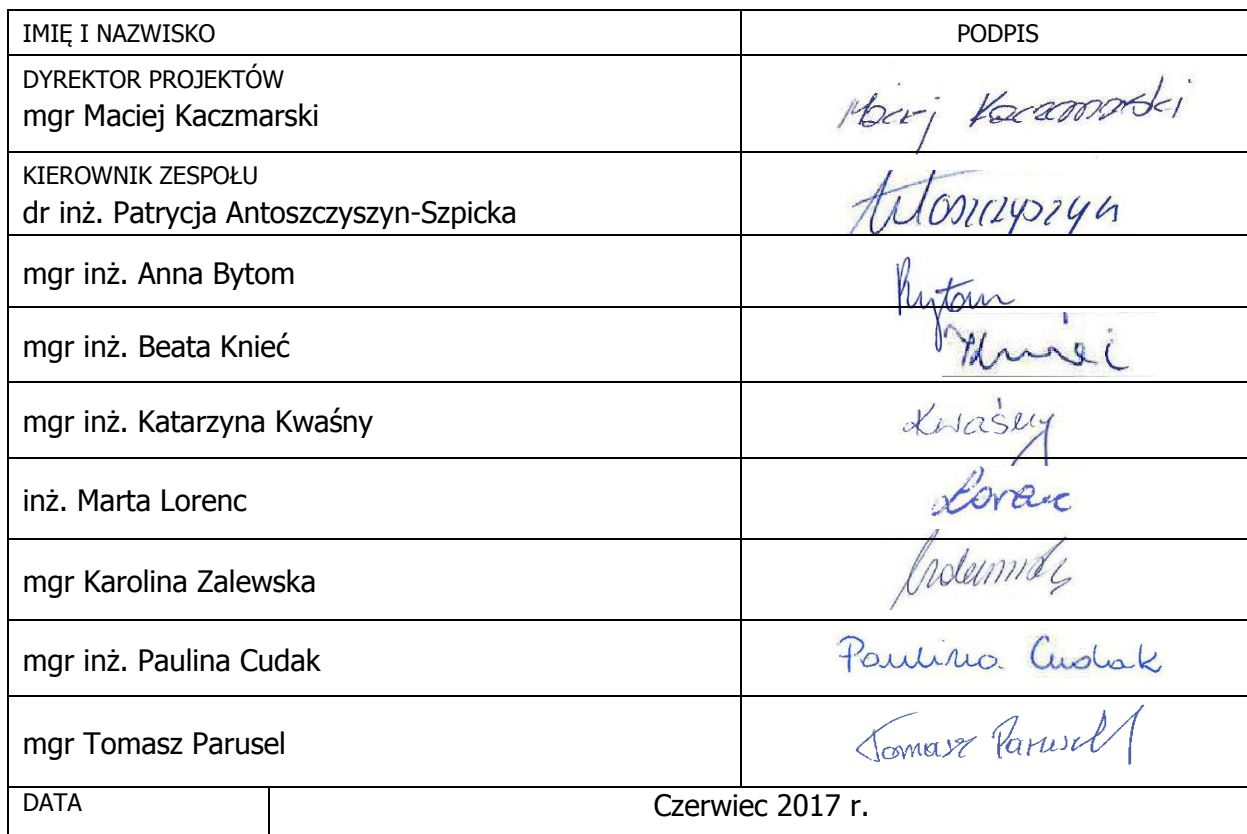 IMIĘ I NAZWISKO PODPIS
DYREKTOR PROJEKTÓW
mgr Maciej Kaczmarski Maciej Kaczmarski
KIEROWNIK ZESPOŁU
dr inż. Patrycja Antoszczyszyn-Szpicka Antoszczyszyn
mgr inż. Anna Bytom Bytom
mgr inż. Beata Knieć Knieć
mgr inż. Katarzyna Kwaśny Kwaśny
inż. Marta Lorenc Lorenc
mgr Karolina Zalewska
mgr inż. Paulina Cudak Paulina Cudak
mgr Tomasz Parusel Tomasz Parusel
DATA Czerwiec 2017 r.